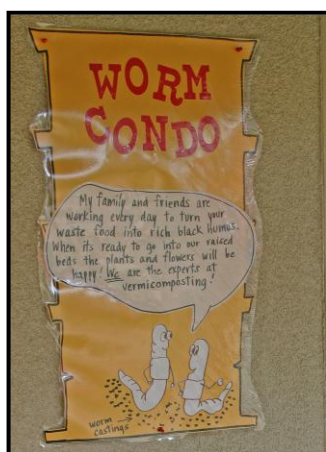 WORM
CONDO
My family and friends are
working every day to turn your
waste food into rich black humus.
When its ready to go into our raised
beds the plants and flowers will be
happy! We are the experts at
vermicomposting!
worm
castings